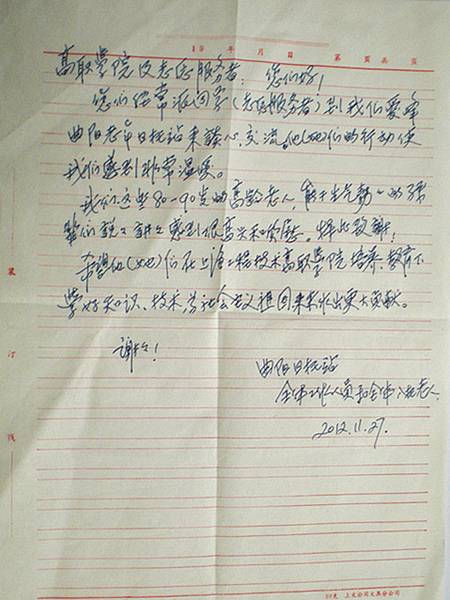 19 年 月 日 第 页共 页
高职学院及志愿服务者: 您们好!
您们经常派同学(志愿服务者)到我们爱峰
曲阳老年日托站来谈心交流。他(她)们的行动使
我们感到非常温暖。
我们这些80-90岁的高龄老人,能和生气勃勃的孩
辈们说说讲讲感到很高兴和舒畅。特此致谢!
希望他(她)们在上海工程技术高职学院培养、教育下
学好知识、技术,为社会主义祖国未来作出更大贡献。
谢谢!
曲阳日托站
全体工作人员和全体入托老人.
2012.11.27.
装
订
线